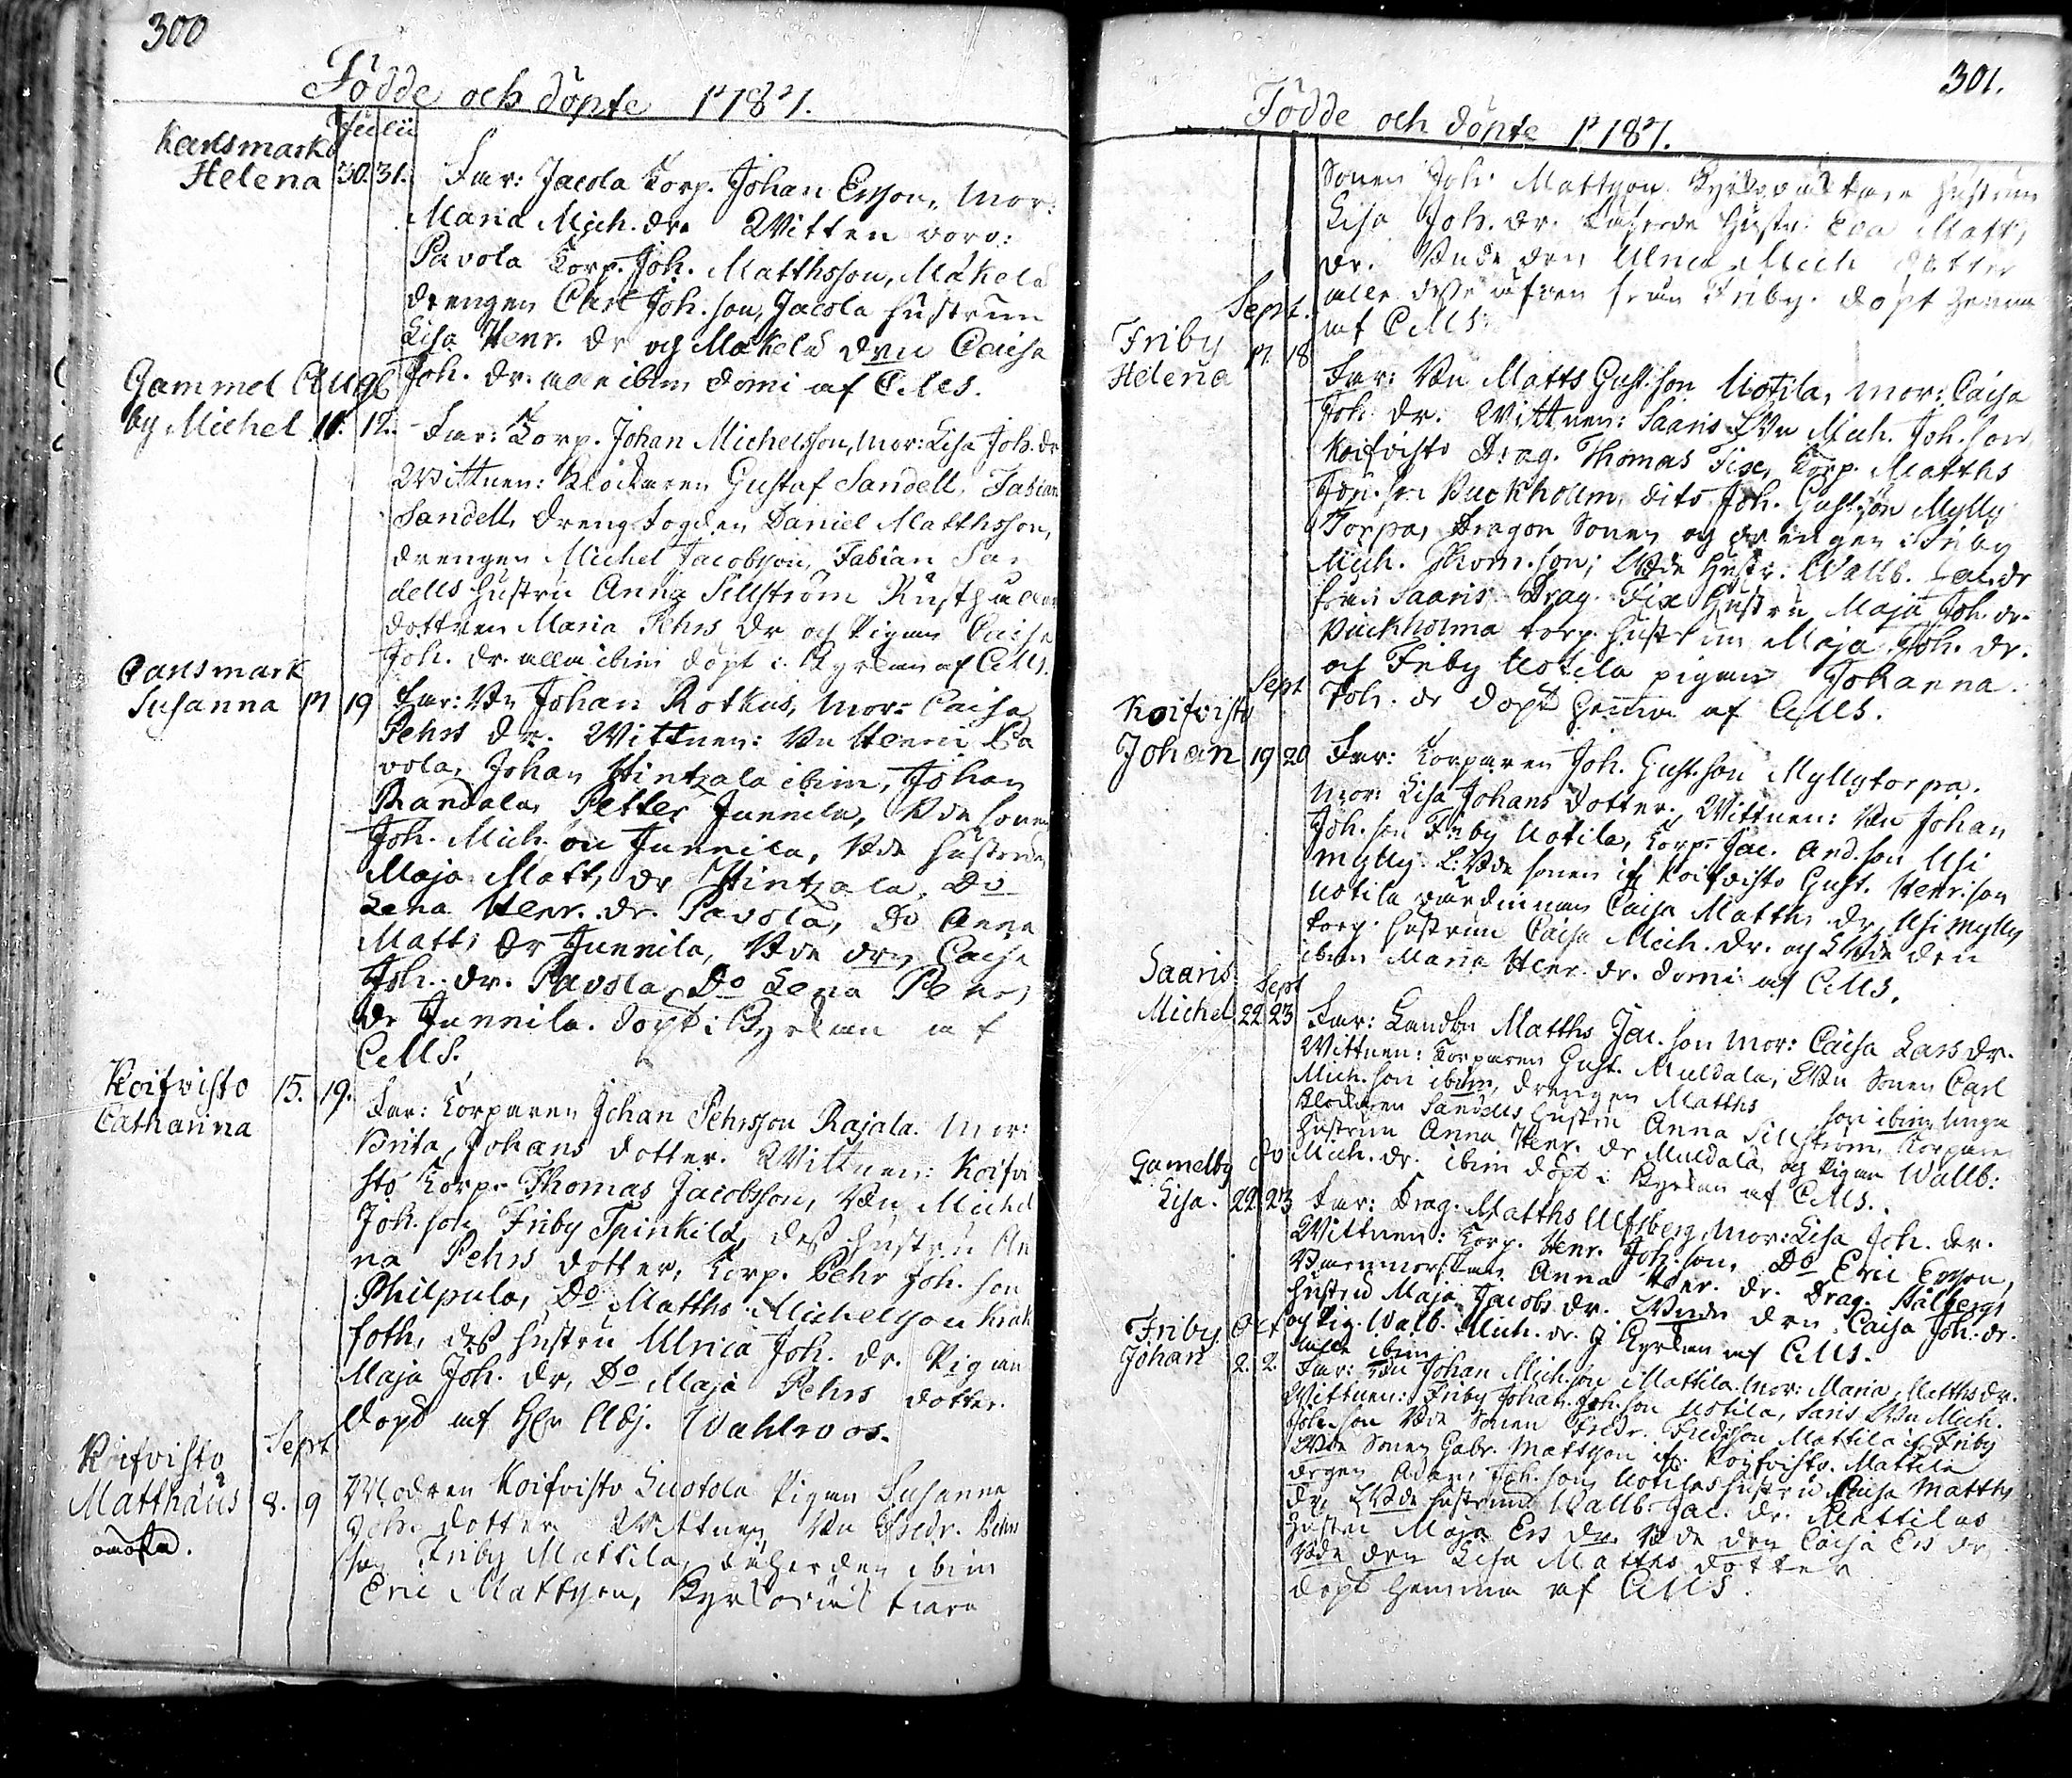 300
Födde och döpte 1787.
Julii
Karlsmark
Helena 30. 31. Far: Jacola Torp. Johan Ersson, Mor:
Maria Mich. dr. Witten voro:
Pavola Torp. Joh. Matthsson, Mäkelä
drengen Carl Joh. son, Jacola hustrun
Lisa Henr. dr och Mäkelä drn Caisa
Joh. dr. alla ibm domi af CMS.
Gammel Aug
by Michel 11. 12. Far: Torp. Johan Michelsson, Mor: Lisa Joh. dr
Wittnen: Klockaren Gustaf Sandell, Fabian
Sandell, Drengfogden Daniel Matthsson,
drengen Michel Jacobsson, Fabian San
dells hustru Anna Sillström Rusthållar
dottren Maria Pehrs dr och Pigan Caisa
Joh. dr. alla ibm döpt i Kyrkan af CMS.
Carlsmark
Susanna 17 19 Far: Bn Johan Rotkus, Mor: Caisa
Pehrs dr. Wittnen: Bn Henric Pa
vola, Johan Hintzala ibm, Johan
Randala, Petter Junnila, Bde sonen
Joh. Mich. son Junnila, Bde hustrun
Maja Matts dr Hintzala. Do
Lena Henr. dr. Pavola, Do Anna
Matts dr Junnila, Bde drn Caisa
Joh. dr. Pavola, Do Lena Pehrs
dr Junnila. döpt i Kyrkan af
CMS.
Koifvisto 15. 19. Far: Torparen Johan Pehrsson Rajala. Mor:
Catharina
Brita Johans dotter. Wittnen: Koifvi
sto Torp. Thomas Jacobsson, Bn Michel
Joh. son Friby Tpinkilä, dess hustru An
na Pehrs dotter, Torp. Pehr Joh. son
Philpula, Do Matths Michelsson
foth, dess hustru Ulrica Joh. dr. Pigan
Maja Joh. dr, Do Maja Pehrs dotter.
döpt af Hr Adj. Wahlroos.
Koifvisto Sept
Matthäus 8. 9 Modren Koifvisto Luotola Pigan Susanna
Joh. dotter Wittnen Bn Fredr. Pehrs
son Friby Mattila, ibm
Eric Mattsson, Kyrkoväktare
301.
Födde och döpte 1787.
Sonen Joh. Mattsson Kyrkoväktare hustrun
Lisa Joh. dr. hustr. Eva Matts
dr. Bnde drn Ulrica Mich dotter
alla desse äfven från Friby. döpt hemma
af CMS.
Sept.
Friby 17. 18
Helena
Far: Bn Matts Gust. son Uotila, Mor: Caisa
Joh. dr. Wittnen: Saaris LBn Mich. Joh. son
Koifvisto Drag. Thomas Fix, Torp. Matths
Joh. son Puckholm, dito Joh. Gust. son Mylly
Torpa, Dragon Sonen och drengen i Friby
Mich. Thom. son; LBde Hustr. Wallb. Jac. dr
från Saaris Drag. Fix Hustru Maja Joh. dr.
Puckholma torp. hustrun Maja Joh. dr.
och Friby Uotila pigan Johanna
Joh. dr döpt hemma af CMS.
Sept
Koifvisto
Johan 19 20 Far: Torparen Joh. Gust. son Myllytorpa.
Mor: Lisa Johans dotter. Wittnen: Bn Johan
Joh. son Friby Uotila, Torp. Jac. And. son Usi
mylly. L: Bde sonen if Koifvisto Gust. Henr. son
Uotila värdinnan Caisa Matths dr, Usi mylly
torp. hustrun Caisa Mich. dr. och LBde drn
ibm Maria Henr. dr. domi af CMS.
Saaris Sept
Michel 22 23 Far: Landbn Matths Jac. son Mor: Caisa Lars dr.
Wittnen: Torparen Gust. Muldala, LBn Sonen Carl
Mich. son ibm, drengen Matths son ibm, unga
Klockaren Sandells hustru Anna Sillström, Torpare
hustrun Anna Henr. dr Muldala, och Pigan Wallb:
Mich. dr. ibm döpt i Kyrkan af CMS.
Gamelby do
Lisa. 22. 23 Far: Drag. Matths Ulfsberg, Mor: Lisa Joh. dr.
Wittnen: Torp. Henr. Joh. son, Do Eric Ersson,
Barnmorskan Anna Henr. dr. Drag. Stålbergs
hustru Maja Jacobs dr. LBnde drn Caisa Joh. dr.
och Pig. Walb. Mich. dr. I Kyrkan af CMS.
alla ibm
Friby Oct
Johan 2. 2. Far: Bn Johan Mich. son Mattila. Mor: Maria Matths dr.
Wittnen: Friby Johan Joh. son Uotila, Saris LBn Mich.
Joh. son Bde Sonen Fredr. Fredsson Mattila if Friby
LBde Sonen Gabr. Mattsson if Koifvisto. Mattila
drgen Adam Joh. son, Uotilas hustru Caisa Matths
dr, LBde hustrun Wallb. Jac. dr. Mattilas
Hustru Maja Ers dr. Bde drn Caisa Ers dr
Bde drn Lisa Matths dotter
döpt hemma af CMS.